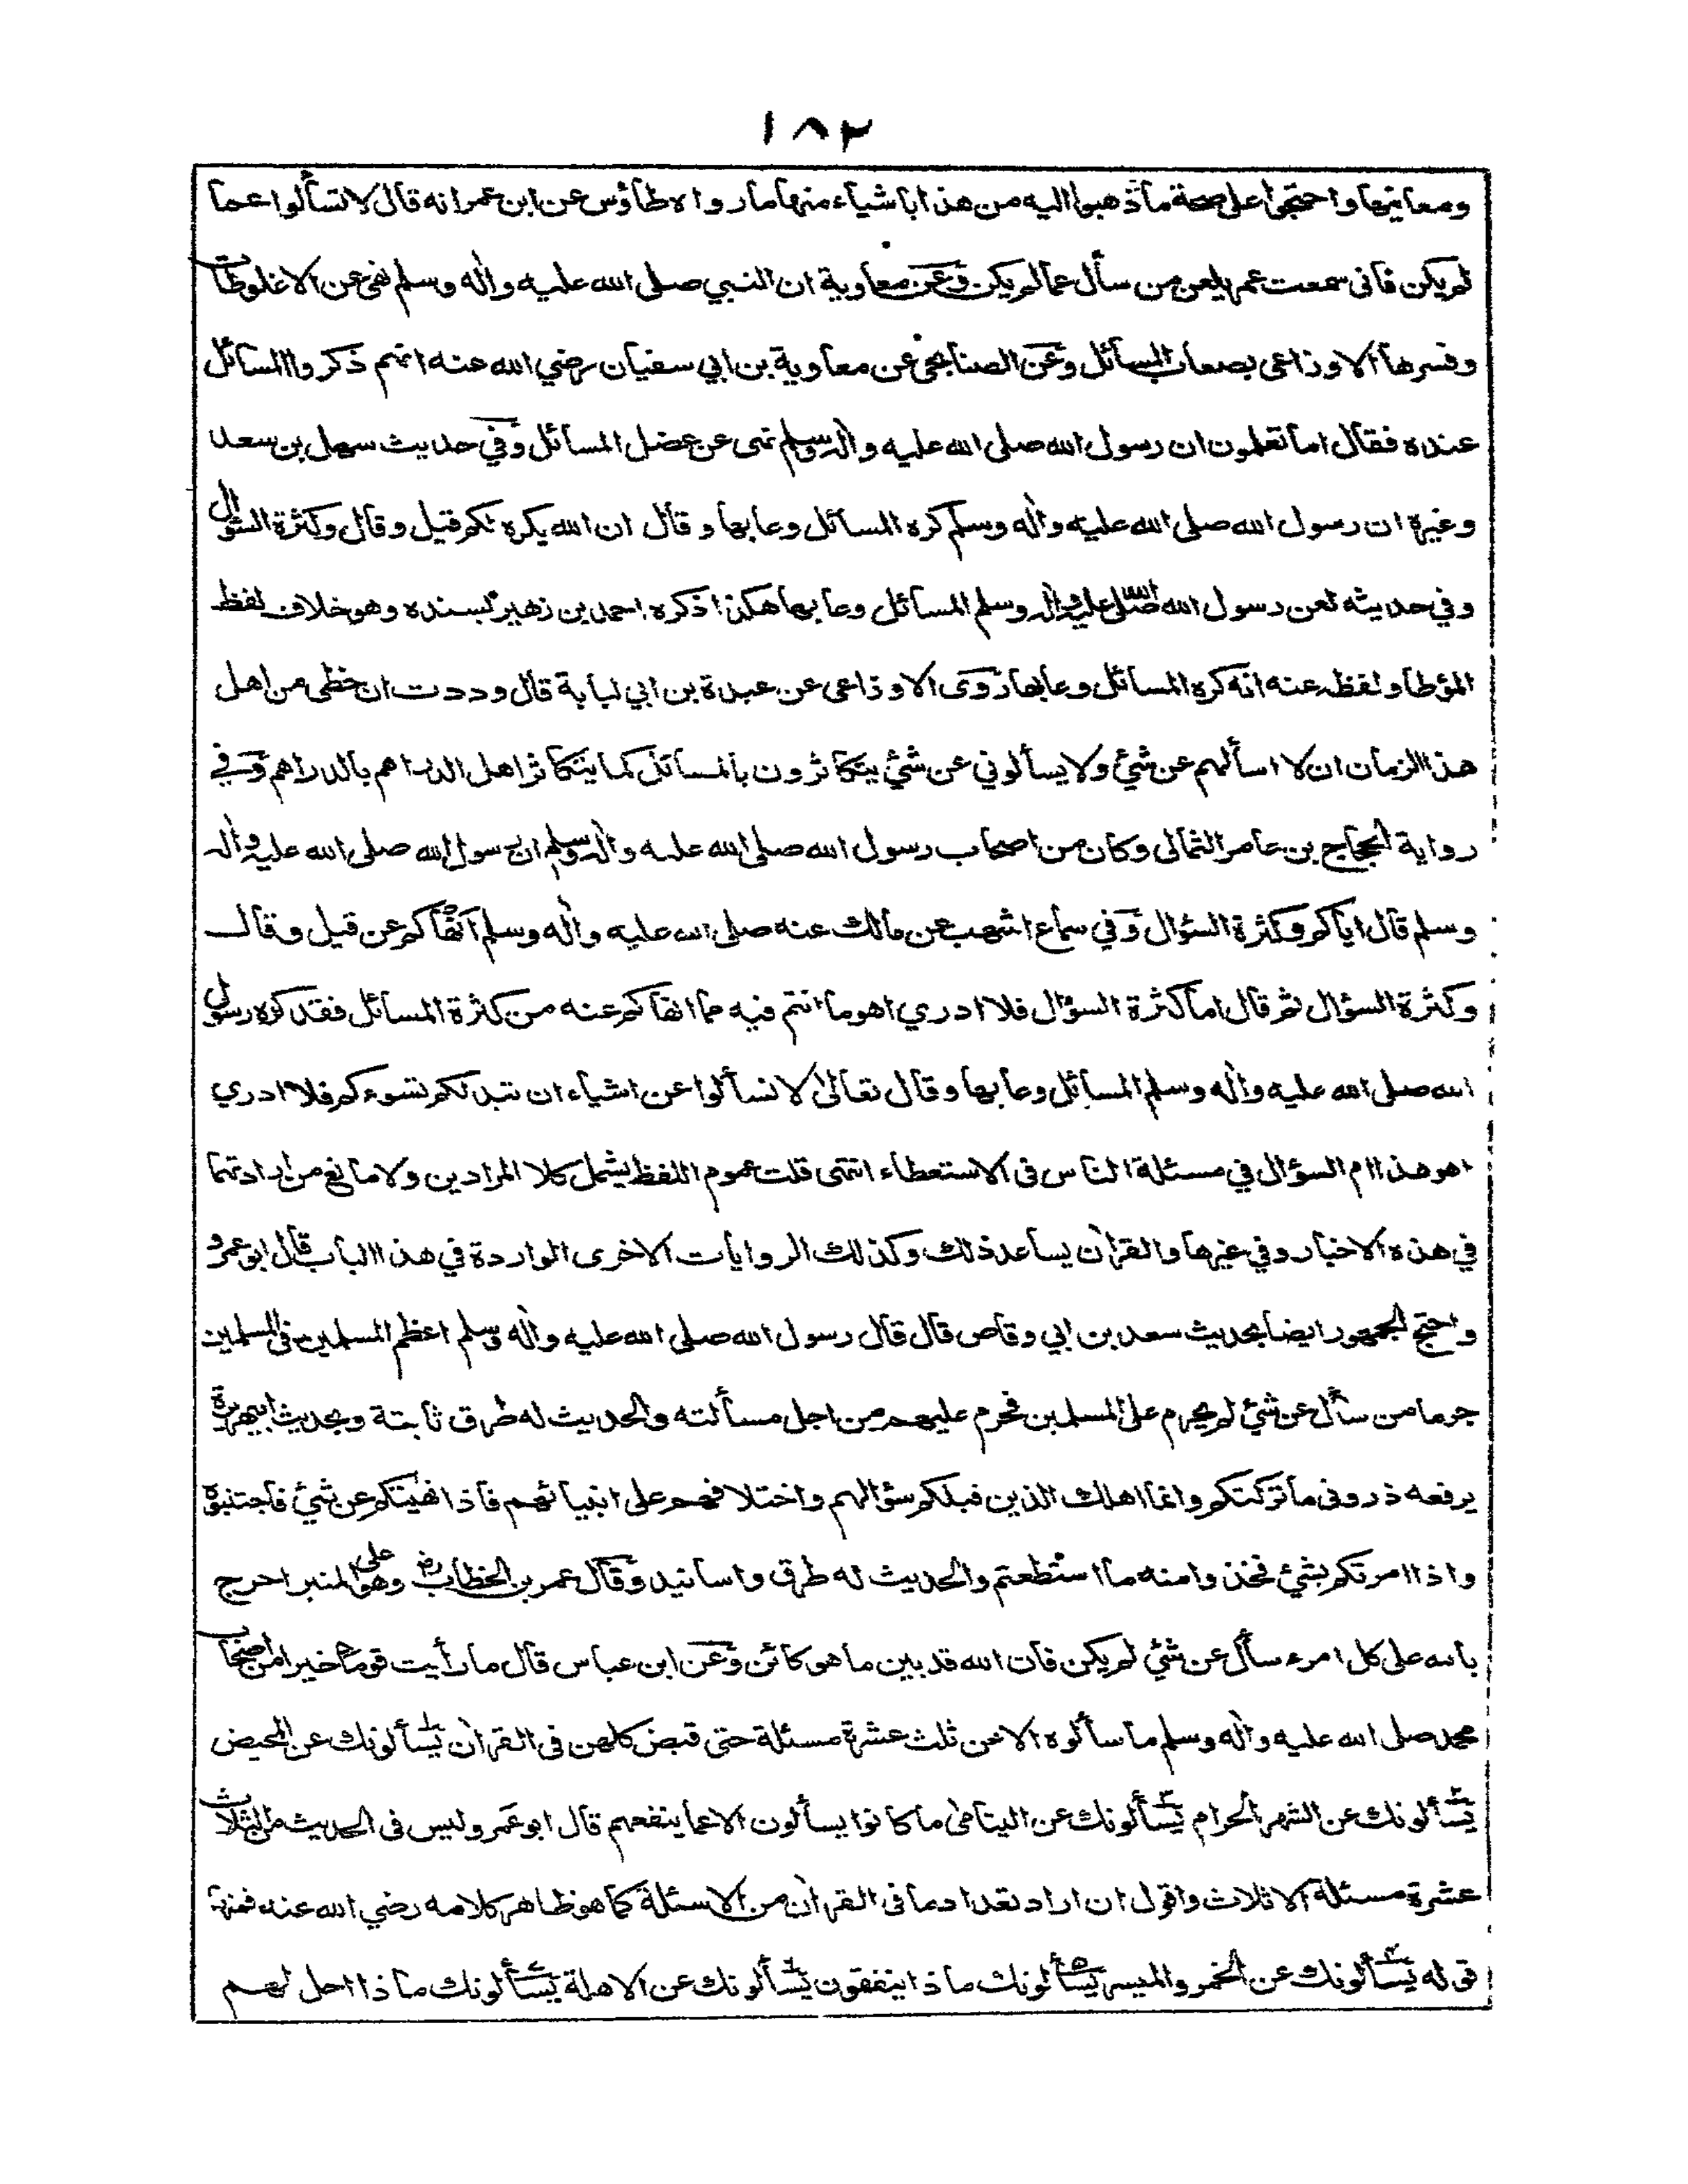 ١٨٢
ومعانيها واحتجوا على صحة ما ذهبوا اليه من هذا باشياء منها ما رواه طاؤس عن ابن عمر انه قال لا تسألوا عما
لم يكن فانى سمعت عمر يلعن من سأل عما لم يكن وعن معاوية ان النبي صلى الله عليه واله وسلم نهى عن الاغلوطات
وفسرها الاوزاعى بصعاب المسائل وعن الصنابحى عن معاوية بن ابي سفيان رضي الله عنه انهم ذكروا المسائل
عنده فقال اما تعلمون ان رسول الله صلى الله عليه واله وسلم نهى عن عضل المسائل وفي حديث سهل بن سعد
وغيره ان رسول الله صلى الله عليه واله وسلم كره المسائل وعابها وقال ان الله يكره لكم قيل وقال وكثرة السؤال
وفي حديثه لعن رسول الله صلى الله عليه واله وسلم المسائل وعابها هكذا ذكره احمد بن زهير بسنده وهو خلاف لفظ
المؤطا ولفظه عنه انه كره المسائل وعابها وروى الاوزاعى عن عبدة بن ابي لبابة قال وددت ان حظى من اهل
هذا الزمان ان لا اسألهم عن شئ ولا يسألوني عن شئ يتكاثرون بالمسائل كما يتكاثر اهل الدراهم بالدراهم وفي
رواية الحجاج بن عامر الثمالى وكان من اصحاب رسول الله صلى الله عليه واله وسلم ان رسول الله صلى الله عليه واله
وسلم قال اياكم وكثرة السؤال وفي سماع اشهب عن مالك عنه صلى الله عليه واله وسلم انهاكم عن قيل وقال
وكثرة السؤال ثم قال اما كثرة السؤال فلا ادري اهو ما انتم فيه مما انهاكم عنه من كثرة المسائل فقد كره رسول
الله صلى الله عليه واله وسلم المسائل وعابها وقال تعالى لا تسألوا عن اشياء ان تبد لكم تسوءكم فلا ادري
اهو هذا ام السؤال في مسئلة الناس فى الاستعطاء انتهى قلت عموم اللفظ يشمل كلا المرادين ولا مانع من ارادتهما
في هذه الاخبار وفي غيرها والقران يساعد ذلك وكذلك الروايات الاخرى الواردة في هذا الباب قال ابو عمرو
واحتج الجمهور ايضا بحديث سعد بن ابي وقاص قال قال رسول الله صلى الله عليه واله وسلم اعظم المسلمين فى المسلمين
جرما من سأل عن شئ لم يحرم على المسلمين فحرم عليهم من اجل مسألته والحديث له طرق ثابتة وبحديث ابيهريرة
يرفعه ذرونى ما تركتكم وانما اهلك الذين قبلكم سؤالهم واختلافهم على انبيائهم فاذا نهيتكم عن شئ فاجتنبوه
واذا امرتكم بشئ فخذوا منه ما استطعتم والحديث له طرق واسانيد وقال عمر بن الخطاب رض وهو على المنبر احرج
بالله على كل امرء سأل عن شئ لم يكن فان الله قد بين ما هو كائن وعن ابن عباس قال ما رأيت قوما خيرا من اصحاب
محمد صلى الله عليه واله وسلم ما سألوه الا عن ثلث عشرة مسئلة حتى قبض كلهن فى القران يسألونك عن المحيض
يسألونك عن الشهر الحرام يسألونك عن اليتامى ما كانوا يسألون الا عما ينفعهم قال ابو عمرو وليس فى الحديث من الثلاث
عشرة مسئلة الا ثلاث واقول ان اراد تعداد ما فى القران من الاسئلة كما هو ظاهر كلامه رضي الله عنه فمنها
قوله يسألونك عن الخمر والميسر يسألونك ماذا ينفقون يسألونك عن الاهلة يسألونك ماذا احل لهم